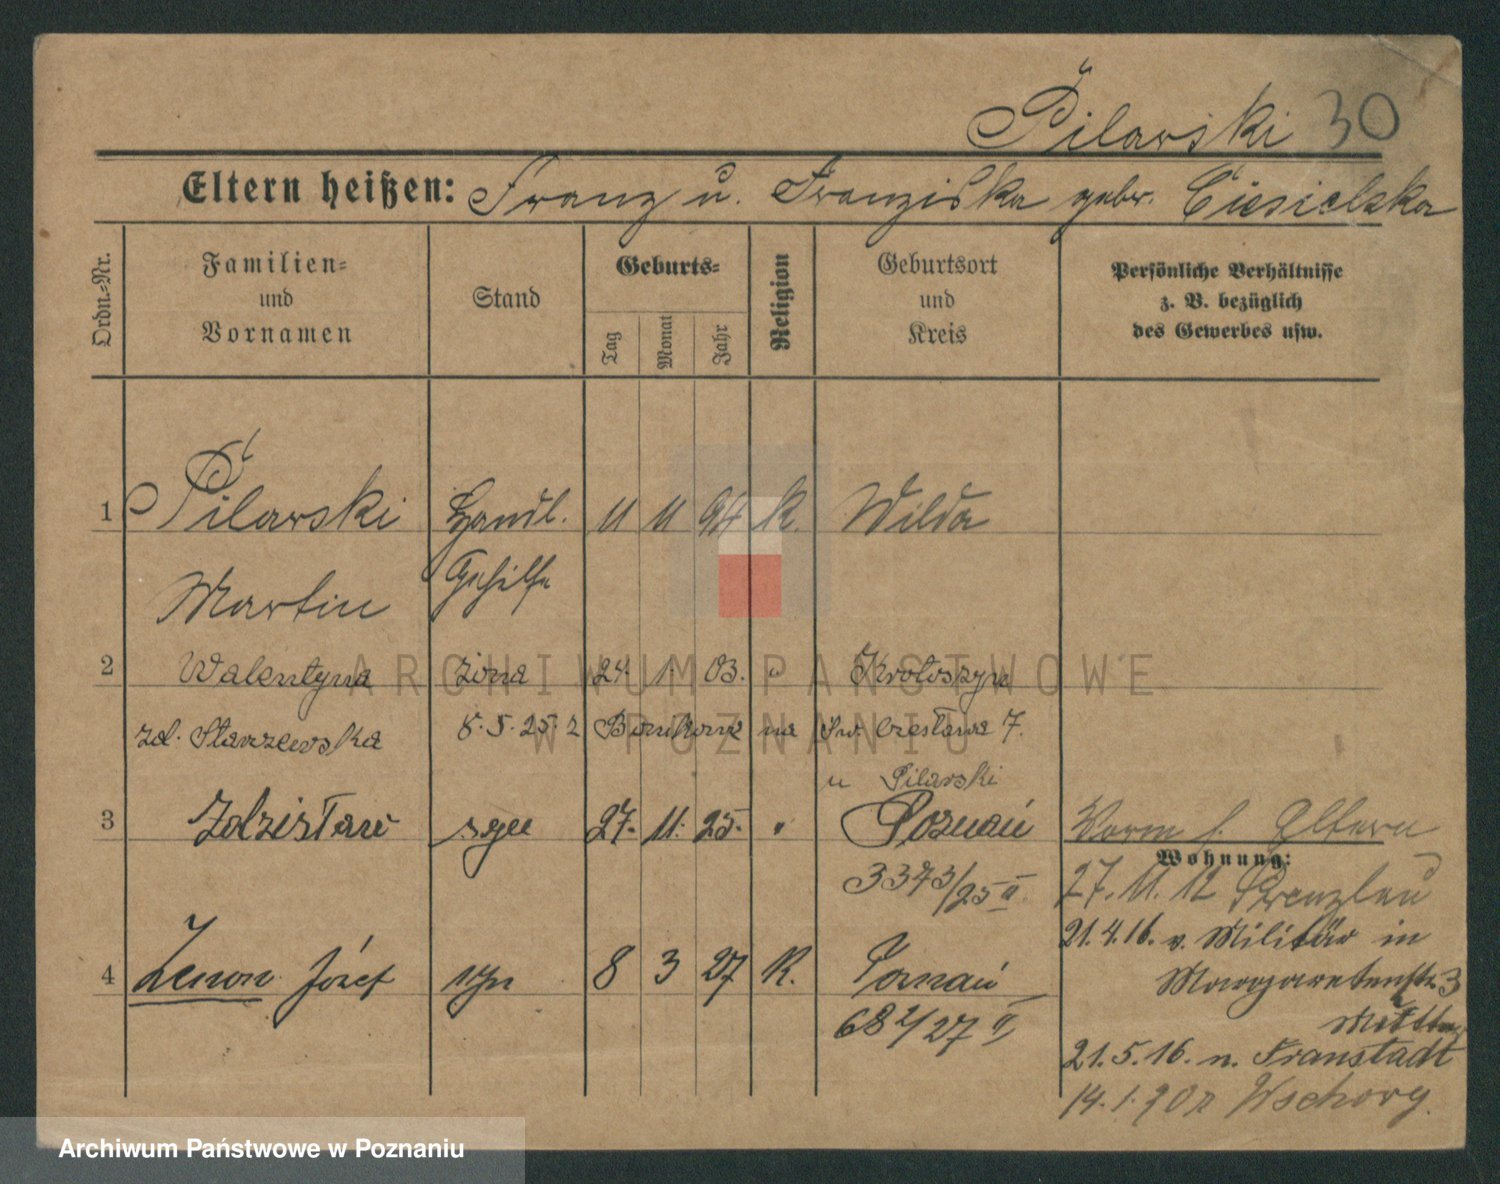 Pilarski 30
Eltern heißen: Franz u. Franziska gebr. Ciesielska
Ordn.-Nr.
Familien-
und
Vornamen
Stand
Geburts-
Tag
Monat
Jahr
Religion
Geburtsort
und
Kreis
Persönliche Verhältnisse
z. B. bezüglich
des Gewerbes usw.
1 Pilarski Handl. 11 11 94 K. Wilda
Martin Gehilfe
2 Walentyna żona 24. 1. 03. " Krotoszyn
zd. Starzewska 8.5.25. z na Św. Czesława 7.
u Pilarski
3 Zdzisław syn 27. 11. 25. " Poznań
3373/25 II.
4 Zenon Józef syn 8 3 27 K. Poznań
682/27 II
Vorm f. Eltern
Wohnung:
27.11.12 Prenzlau
21.4.16. v. Militär in
Margaretenstr. 3
21.5.16. n. Fraustadt
14.1.20 z Wschowy.
ARCHIWUM PAŃSTWOWE
W POZNANIU
Archiwum Państwowe w Poznaniu